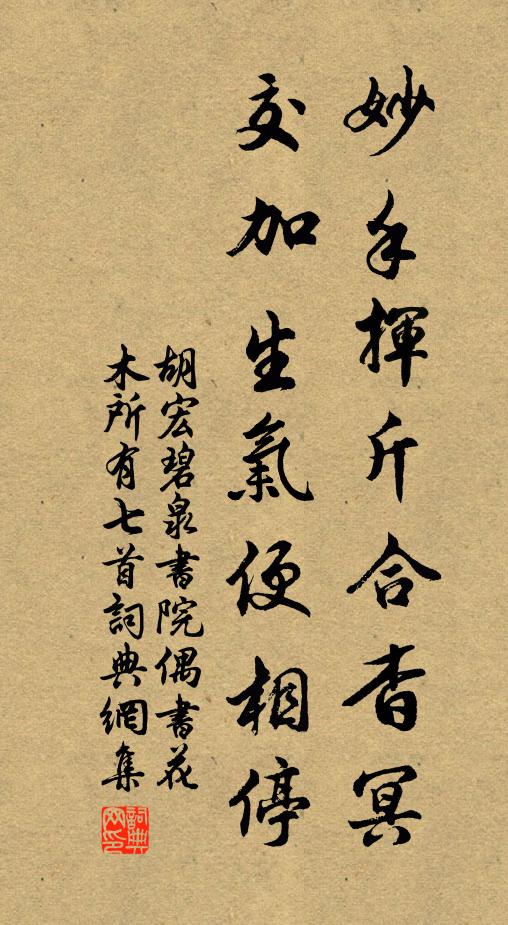 妙手揮斤合杳冥
交加生氣便相停
胡宏碧泉書院偶書花
木所有七首詞典網集
詞典网印